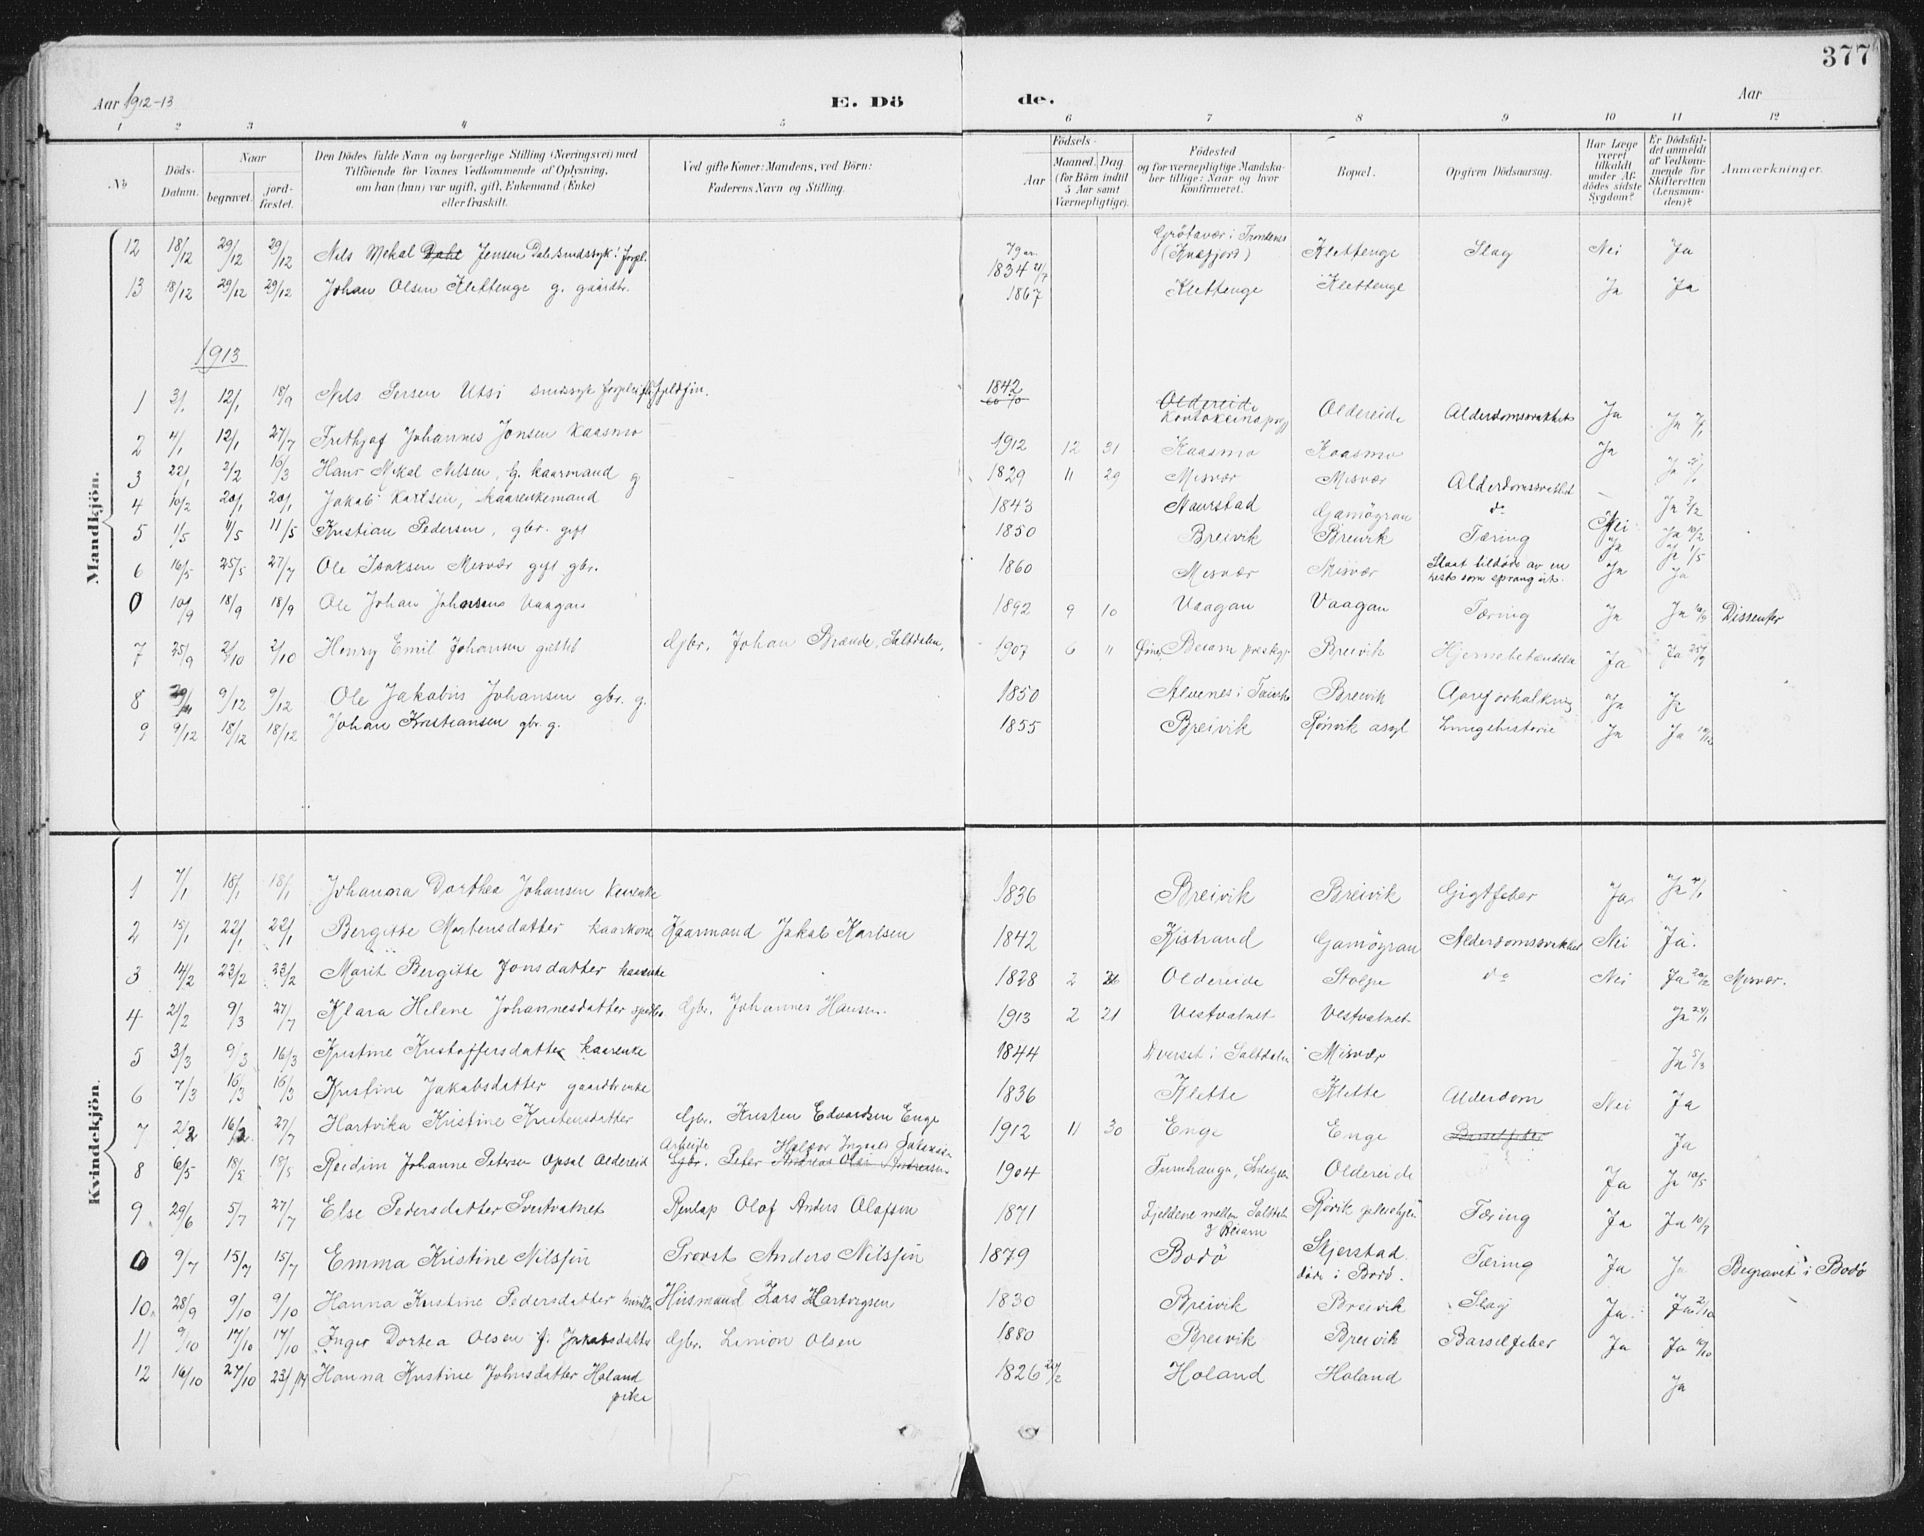 377
Aar 1912-13 E. Dö de. Aar
1 2 3 4 5 6 7 8 9 10 11 12
No
Döds-Datum.
Naar
begravet. jord-fæstet.
Den Dödes fulde Navn og borgerlige Stilling (Næringsvei) med
Tilföiende for Voxnes Vedkommende af Oplysning,
om han (hun) var ugift, gift, Enkemand (Enke)
eller fraskilt.
Ved gifte Koner: Mandens, ved Börn:
Faderens Navn og Stilling.
Födsels-
Aar Maaned Dag
(for Börn indtil
5 Aar samt
Værnepligtige).
Födested
og for værnepligtige Mandska-
ber tillige: Naar og hvor
konfirmeret.
Bopæl.
Opgiven Dödsaarsag.
Har Læge
været
tilkaldt
under Af-
dödes sidste
Sygdom?
Er Dödsfal-
det anmeldt
af Vedkom-
mende for
Skifteretten
(Lensman-
den)?
Anmærkninger.
Mandkjön.
12 18/12 29/12 29/12 Nils Mekal Dahl Jensen 1834 Klettenge Slag Nei Ja
13 18/12 29/12 29/12 Johan Olsen Klettenge g. gaardbr. 1867 Klettenge Klettenge Ja Ja
1913
1 3/1 12/1 18/9 Nils Persen Utsi 1842 Oldereide Oldereide Alderdomssvakhet Ja Ja
2 4/1 12/1 27/7 Frithjof Johannes Jonsen Kaasmo 1912 12 31 Kaasmo Kaasmo Ja
3 22/1 2/2 16/3 Hans Mikal Nilsen, kaarmand g 1829 11 29 Misvær Misvær Alderdomssvakhet
4 10/2 20/1 20/1 Jakob Karlsen, kaarenkemand 1843 Naurstad Gamøgran do Ja
5 1/5 11/5 11/5 Kristian Pedersen, gbr. gift 1850 Breivik Breivik Tæring Nei Ja
6 16/5 25/5 27/7 Ole Isaksen Misvær gift gbr. 1860 Misvær Misvær Slaat tildøde av en hest som sprang ut. Ja Ja
0 10/9 18/9 18/9 Ole Johan Johnsens Vaagan 1892 9 10 Vaagan Vaagan Tæring Ja Ja Dissenter
7 25/9 2/10 2/10 Henry Emil Johansen Gbr. Johan Brænde, Saltdalen, 1907 6 11 Beiarn præstegj Breivik Hjernebetændelse Ja Ja 25/9
8 9/12 9/12 Ole Jakobus Johansen gbr. g. 1850 Breivik Aareforkalkning Ja Ja
9 9/12 18/12 18/12 Johan Kristiansen gbr. g. 1855 Breivik Rønvik asyl Ja Ja
Kvindekjön.
1 7/1 18/1 18/1 Johanna Dorthea Johansen 1836 Breivik Breivik Gigtfeber Ja Ja
2 15/1 22/1 22/1 Bergitte Mortensdatter kaarkone Kaarmand Jakob Karlsen 1842 Kistrand Gamøgran Alderdomssvakhet Nei Ja.
3 14/2 23/2 23/2 Marit Bergitte Jonsdatter kaarenke 1828 2 Oldereide Stolpe do Nei Ja Misvær.
4 21/2 9/3 27/7 Klara Helene Johannesdatter Gbr. Johannes Hansen. 1913 2 21 Vestvatnet Vestvatnet Ja
5 3/3 9/3 16/3 Kristine Kristoffersdatter kaarenke 1844 i Saltdalen Misvær Ja 5/3
6 7/3 16/3 16/3 Kristine Jakobsdatter gaardbr.enke 1836 Klette Klette Alderdom Nei Ja
7 16/3 27/7 Hartvika Kristine Kristensdatter Gbr. Kristen Edvardsen Enge 1912 11 30 Enge Enge Barselfeber Ja
8 6/5 18/5 18/5 Reidun Johanne Petersen Opsal Oldereid Arbeide Gbr. Peter 1904 Oldereide Ja Ja 10/5
9 29/6 5/7 27/7 Else Pedersdatter Svartvatnet Renlap Olof Anders Olafsen 1871 Fjeldene mellem Saltdalen og Beiarn Tæring Ja Ja 10/7
0 9/7 15/7 15/7 Emma Kristine Nilsfin Provst Anders Nilsfin 1879 Bodø Skjerstad. døde i Bodø. Tæring Ja Ja Begravet i Bodø
10 28/9 9/10 9/10 Hanna Kristine Pedersdatter Husmand Lars Hartvigsen 1830 Breivik Breivik Slag Ja Ja 2/10
11 9/10 17/10 17/10 Inger Dortea Olsen f. Jakobsdatter Gbr. Simon Olsen 1880 Breivik Breivik Barselfeber Ja Ja
12 16/10 27/10 Hanna Kristine Johnsdatter Holand pike 1826 Holand Holand Ja